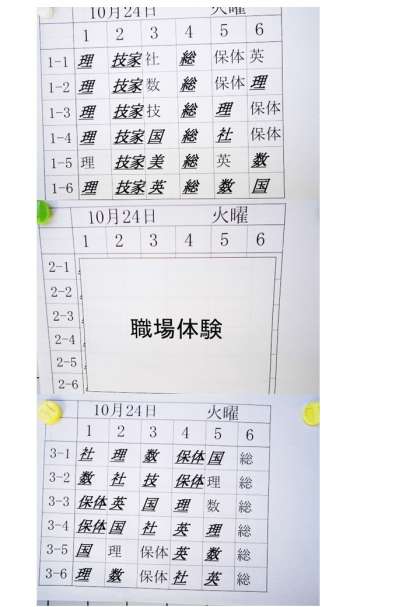 10月24日 火曜
1 2 3 4 5 6
1-1 理 技家 社 総 保体 英
1-2 理 技家 数 総 保体 理
1-3 理 技家 技 総 理 保体
1-4 理 技家 国 総 社 保体
1-5 理 技家 美 総 英 数
1-6 理 技家 英 総 数 国
10月24日 火曜
1 2 3 4 5 6
2-1
2-2
2-3
職場体験
2-4
2-5
2-6
10月24日 火曜
1 2 3 4 5 6
3-1 社 理 数 保体 国 総
3-2 数 社 技 保体 理 総
3-3 保体 英 国 理 数 総
3-4 保体 国 社 英 理 総
3-5 国 理 保体 英 数 総
3-6 理 数 保体 社 英 総